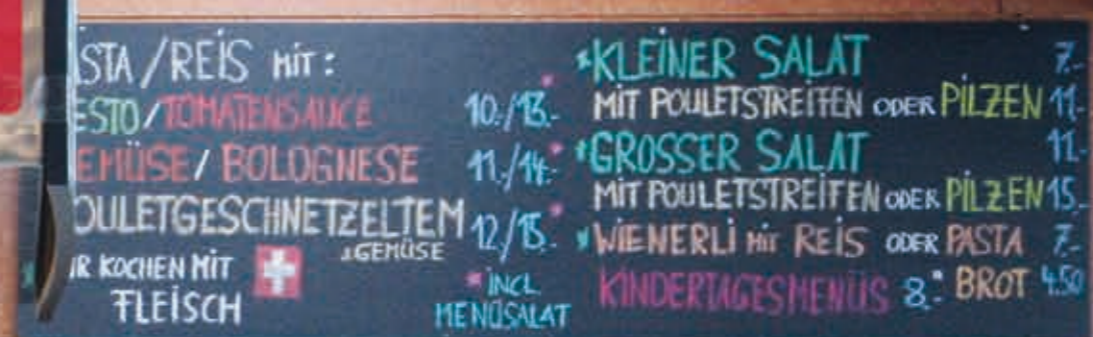 STA/REIS MIT:
ESTO/TOMATENSAUCE 10.-/13.-*
EMÜSE/BOLOGNESE 11.-/14.-*
OULETGESCHNETZELTEM 12/15.-*
& GEMÜSE
IR KOCHEN MIT
FLEISCH
* INCL.
MENÜSALAT
*KLEINER SALAT 7.-
MIT POULETSTREIFEN ODER PILZEN 11.-
*GROSSER SALAT 11.-
MIT POULETSTREIFEN ODER PILZEN 15.-
*WIENERLI MIT REIS ODER PASTA 7.-
KINDERTAGESMENÜS 8.- * BROT 4.50